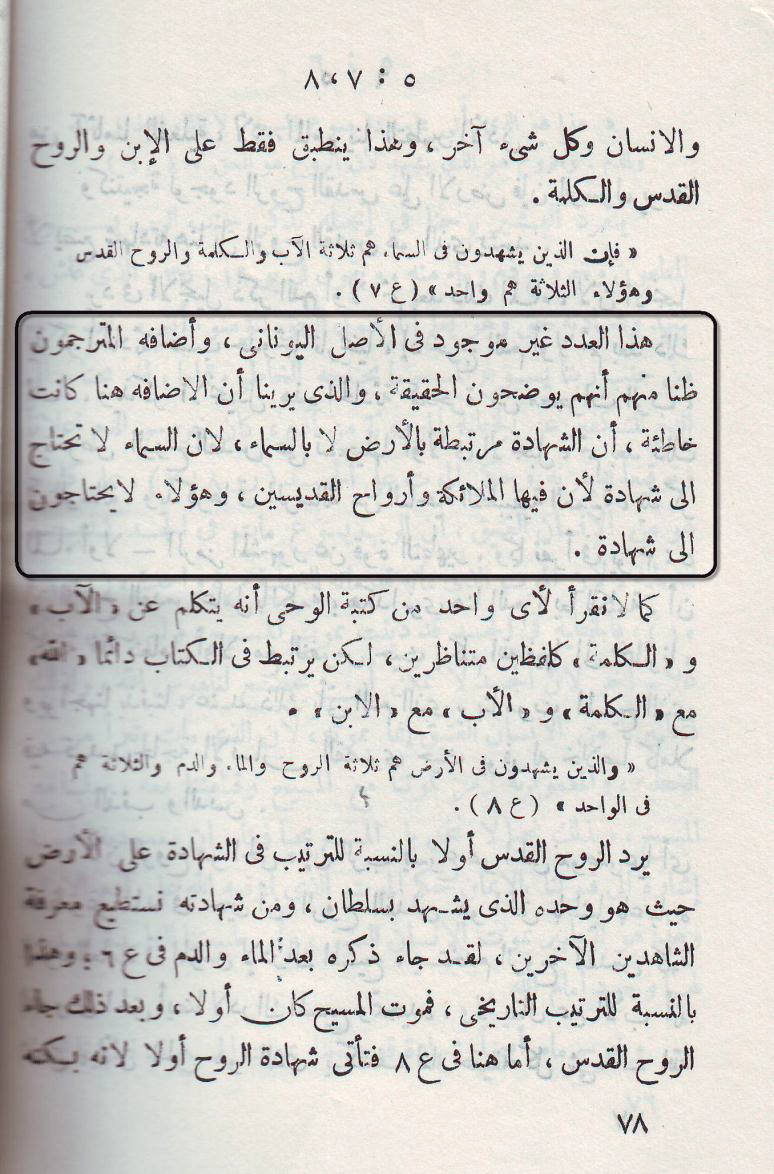 ٥ : ٧ ، ٨
والانسان وكل شىء آخر ، وهذا ينطبق فقط على الإبن والروح
القدس والكلمة .
« فإن الذين يشهدون فى السماء هم ثلاثة الآب والكلمة والروح القدس
وهؤلاء الثلاثة هم واحد » ( ع ٧ ) .
هذا العدد غير موجود فى الأصل اليونانى ، وأضافه المترجمون
ظنا منهم أنهم يوضحون الحقيقة ، والذى يرينا أن الاضافه هنا كانت
خاطئة ، أن الشهادة مرتبطة بالأرض لا بالسماء ، لان السماء لا تحتاج
الى شهادة لأن فيها الملائكة وأرواح القديسين ، وهؤلاء لايحتاجون
الى شهادة .
كما لا نقرأ لأى واحد من كتبة الوحى أنه يتكلم عن « الآب »
و « الكلمة » كلفظين متناظرين ، لكن يرتبط فى الكتاب دائما « الله »
مع « الكلمة » و « الأب » مع « الابن » .
« والذين يشهدون فى الأرض هم ثلاثة الروح والماء والدم والثلاثة هم
فى الواحد » ( ع ٨ ) .
يرد الروح القدس أولا بالنسبة للترتيب فى الشهادة على الأرض
حيث هو وحده الذى يشهد بسلطان ، ومن شهادته نستطيع معرفة
الشاهدين الآخرين ، لقد جاء ذكره بعد الماء والدم فى ع ٦ ، وهذا
بالنسبة للترتيب التاريخى ، فموت المسيح كان أولا ، وبعد ذلك جاء
الروح القدس ، أما هنا فى ع ٨ فتأتى شهادة الروح أولا لانه
٧٨